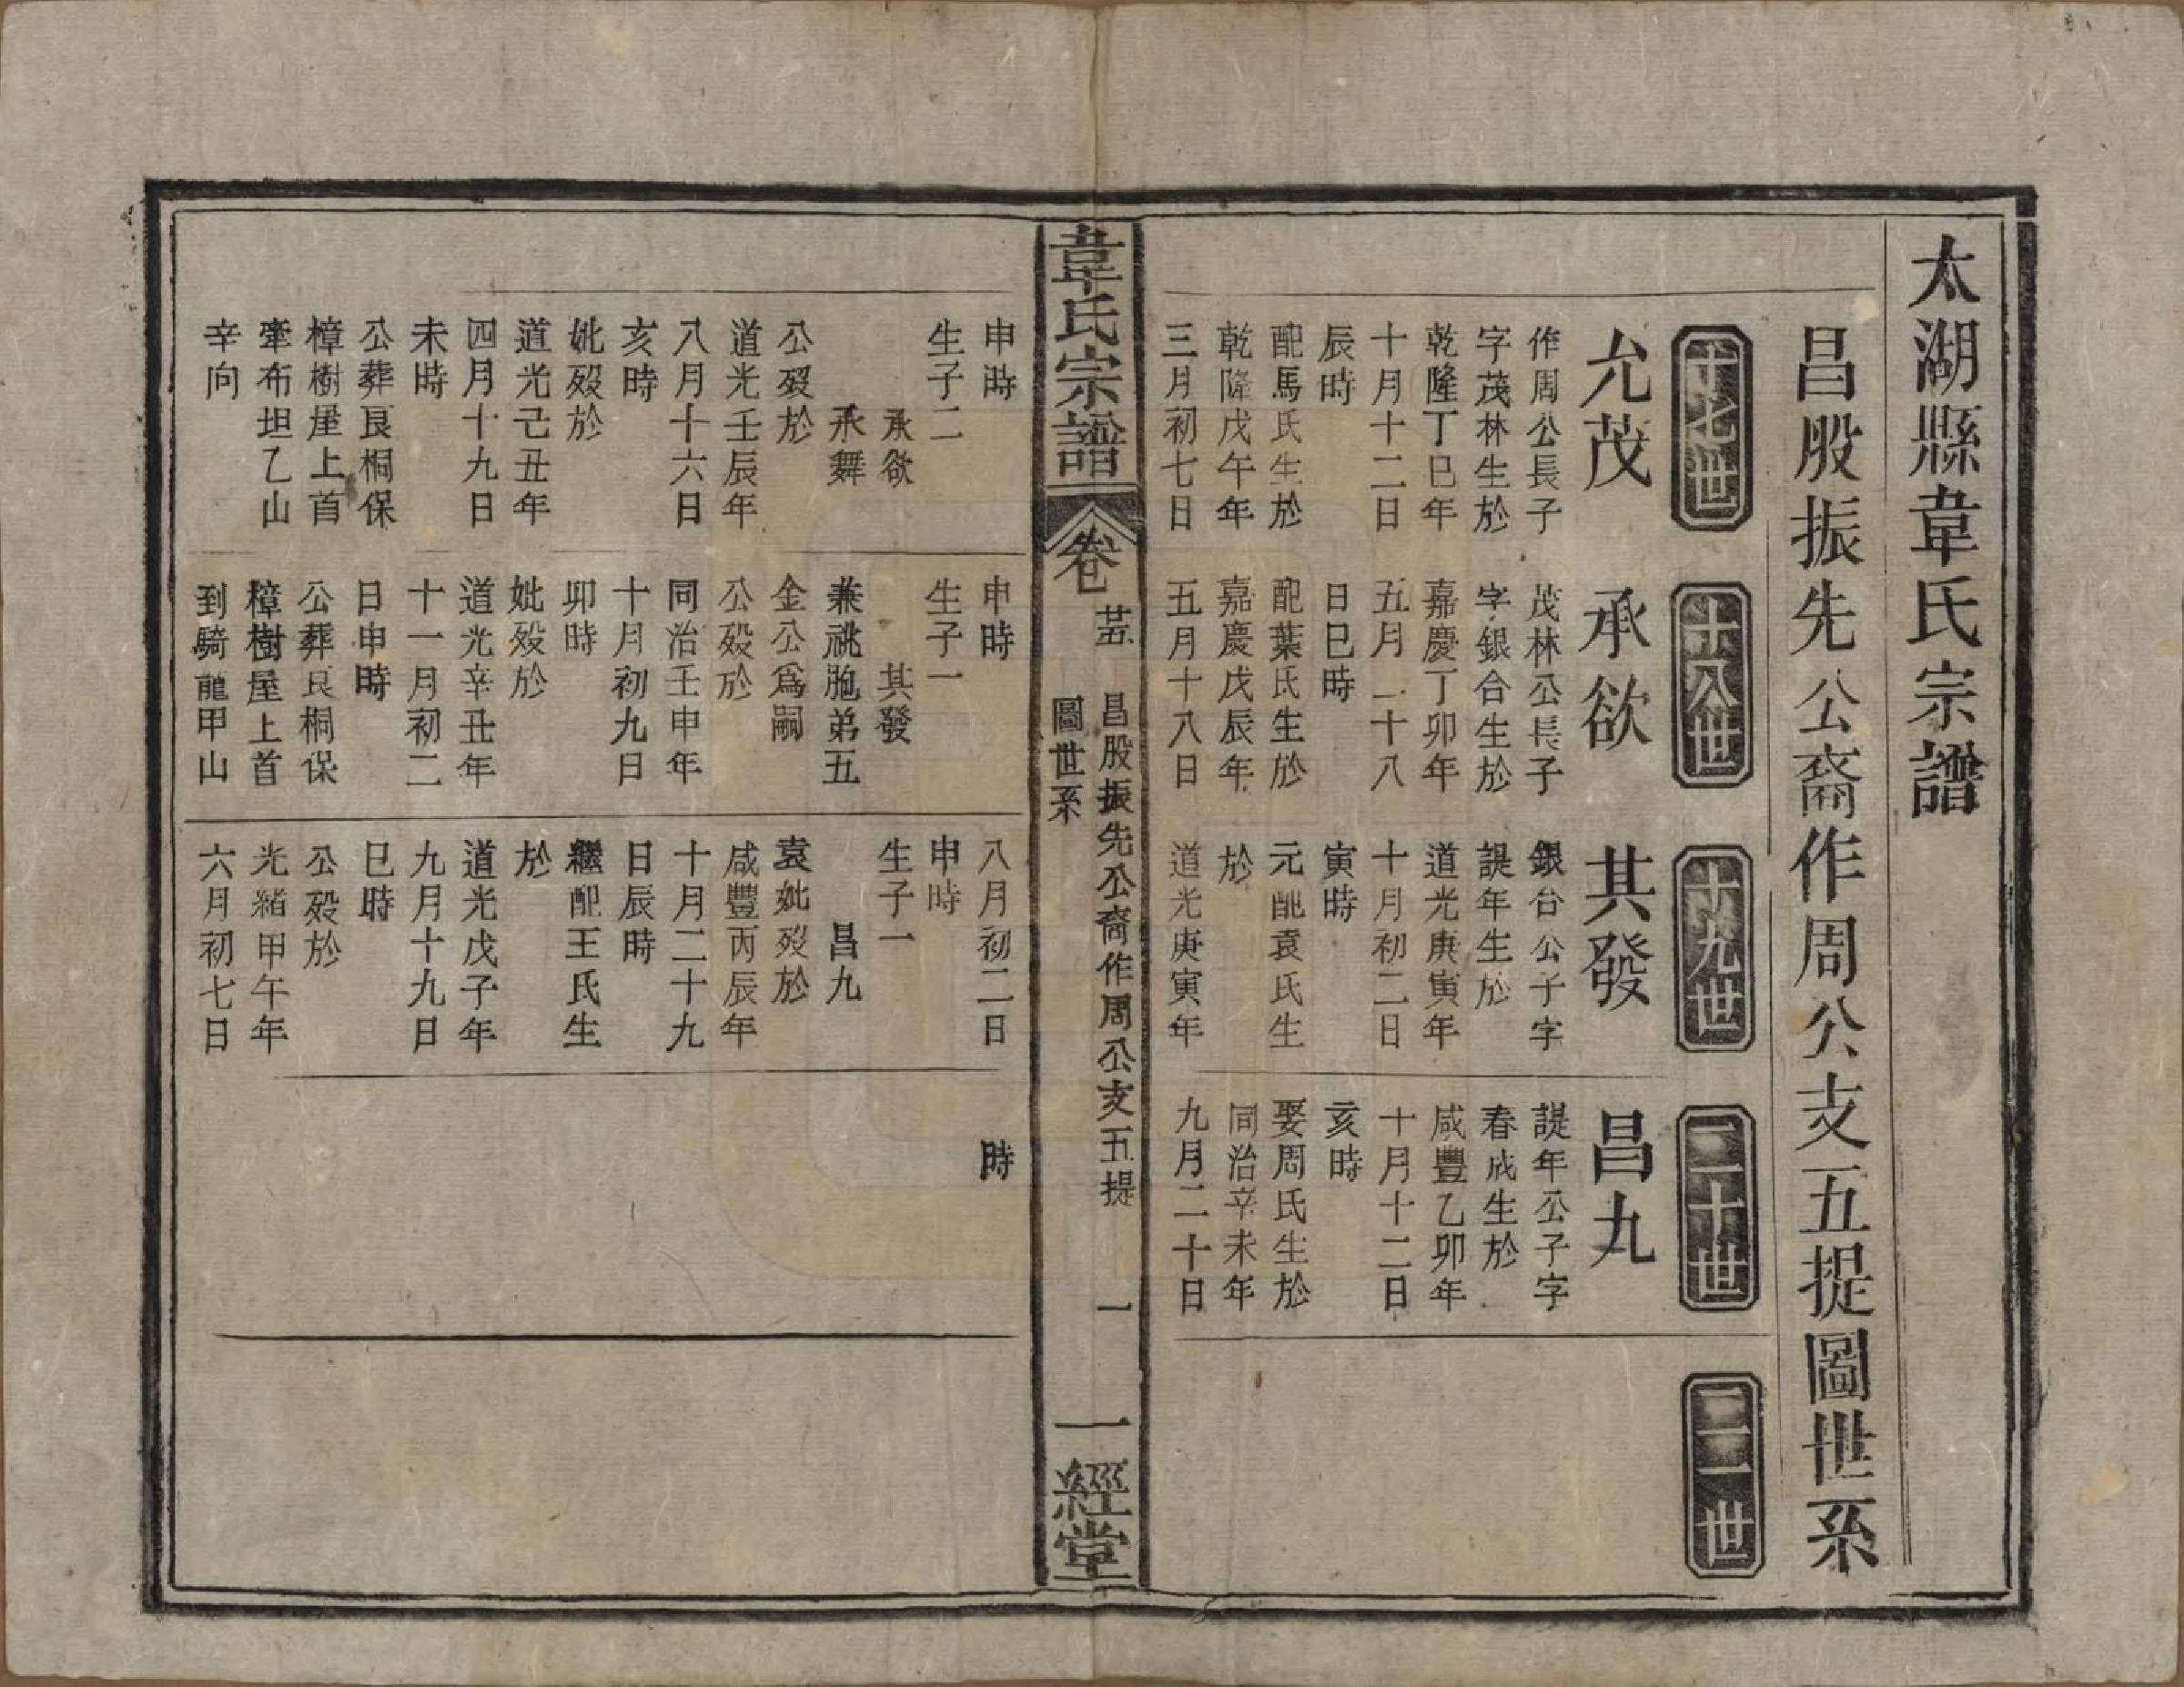 太湖縣韋氏宗譜
昌股振先公裔作周公支五提圖世系
十七世
允茂
作周公長子
字茂林生於
乾隆丁巳年
十月十二日
辰時
配馬氏生於
乾隆戊午年
三月初七日
十八世
承欲
茂林公長子
字銀合生於
嘉慶丁卯年
五月二十八
日巳時
配葉氏生於
嘉慶戊辰年
五月十八日
十九世
其發
銀台公子字
諟年生於
道光庚寅年
十月初二日
寅時
元配袁氏生
於
道光庚寅年
二十世
昌九
諟年公子字
春成生於
咸豐乙卯年
十月十二日
亥時
娶周氏生於
同治辛未年
九月二十日
二一世
韋氏宗譜
卷
廿五
昌股振先公裔作周公支五提
圖世系
一
一經堂
申時
生子二
承欲
承舞
公歿於
道光壬辰年
八月十六日
亥時
妣歿於
道光己丑年
四月十九日
未時
公葬艮桐保
樟樹屋上首
牽布坦乙山
辛向
申時
生子一
其發
兼祧胞弟五
金公爲嗣
公歿於
同治壬申年
十月初九日
卯時
妣歿於
道光辛丑年
十一月初二
日申時
公葬艮桐保
樟樹屋上首
到騎龍甲山
八月初二日
申時
生子一
昌九
袁妣歿於
咸豐丙辰年
十月二十九
日辰時
繼配王氏生
於
道光戊子年
九月十九日
巳時
公歿於
光緒甲午年
六月初七日
時